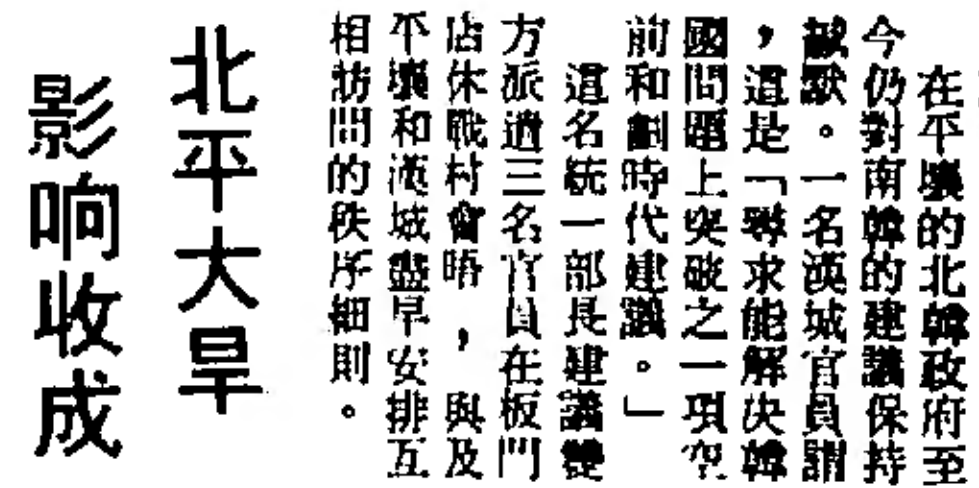 在平壤的北韓政府至
今仍對南韓的建議保持
緘默。一名漢城官員謂
，這是「尋求能解決韓
國問題上突破之一項空
前和劃時代建議。」
這名統一部長建議雙
方派遣三名官員在板門
店休戰村會晤，與及
平壤和漢城盡早安排互
相訪問的秩序細則。
北平大旱
影响收成